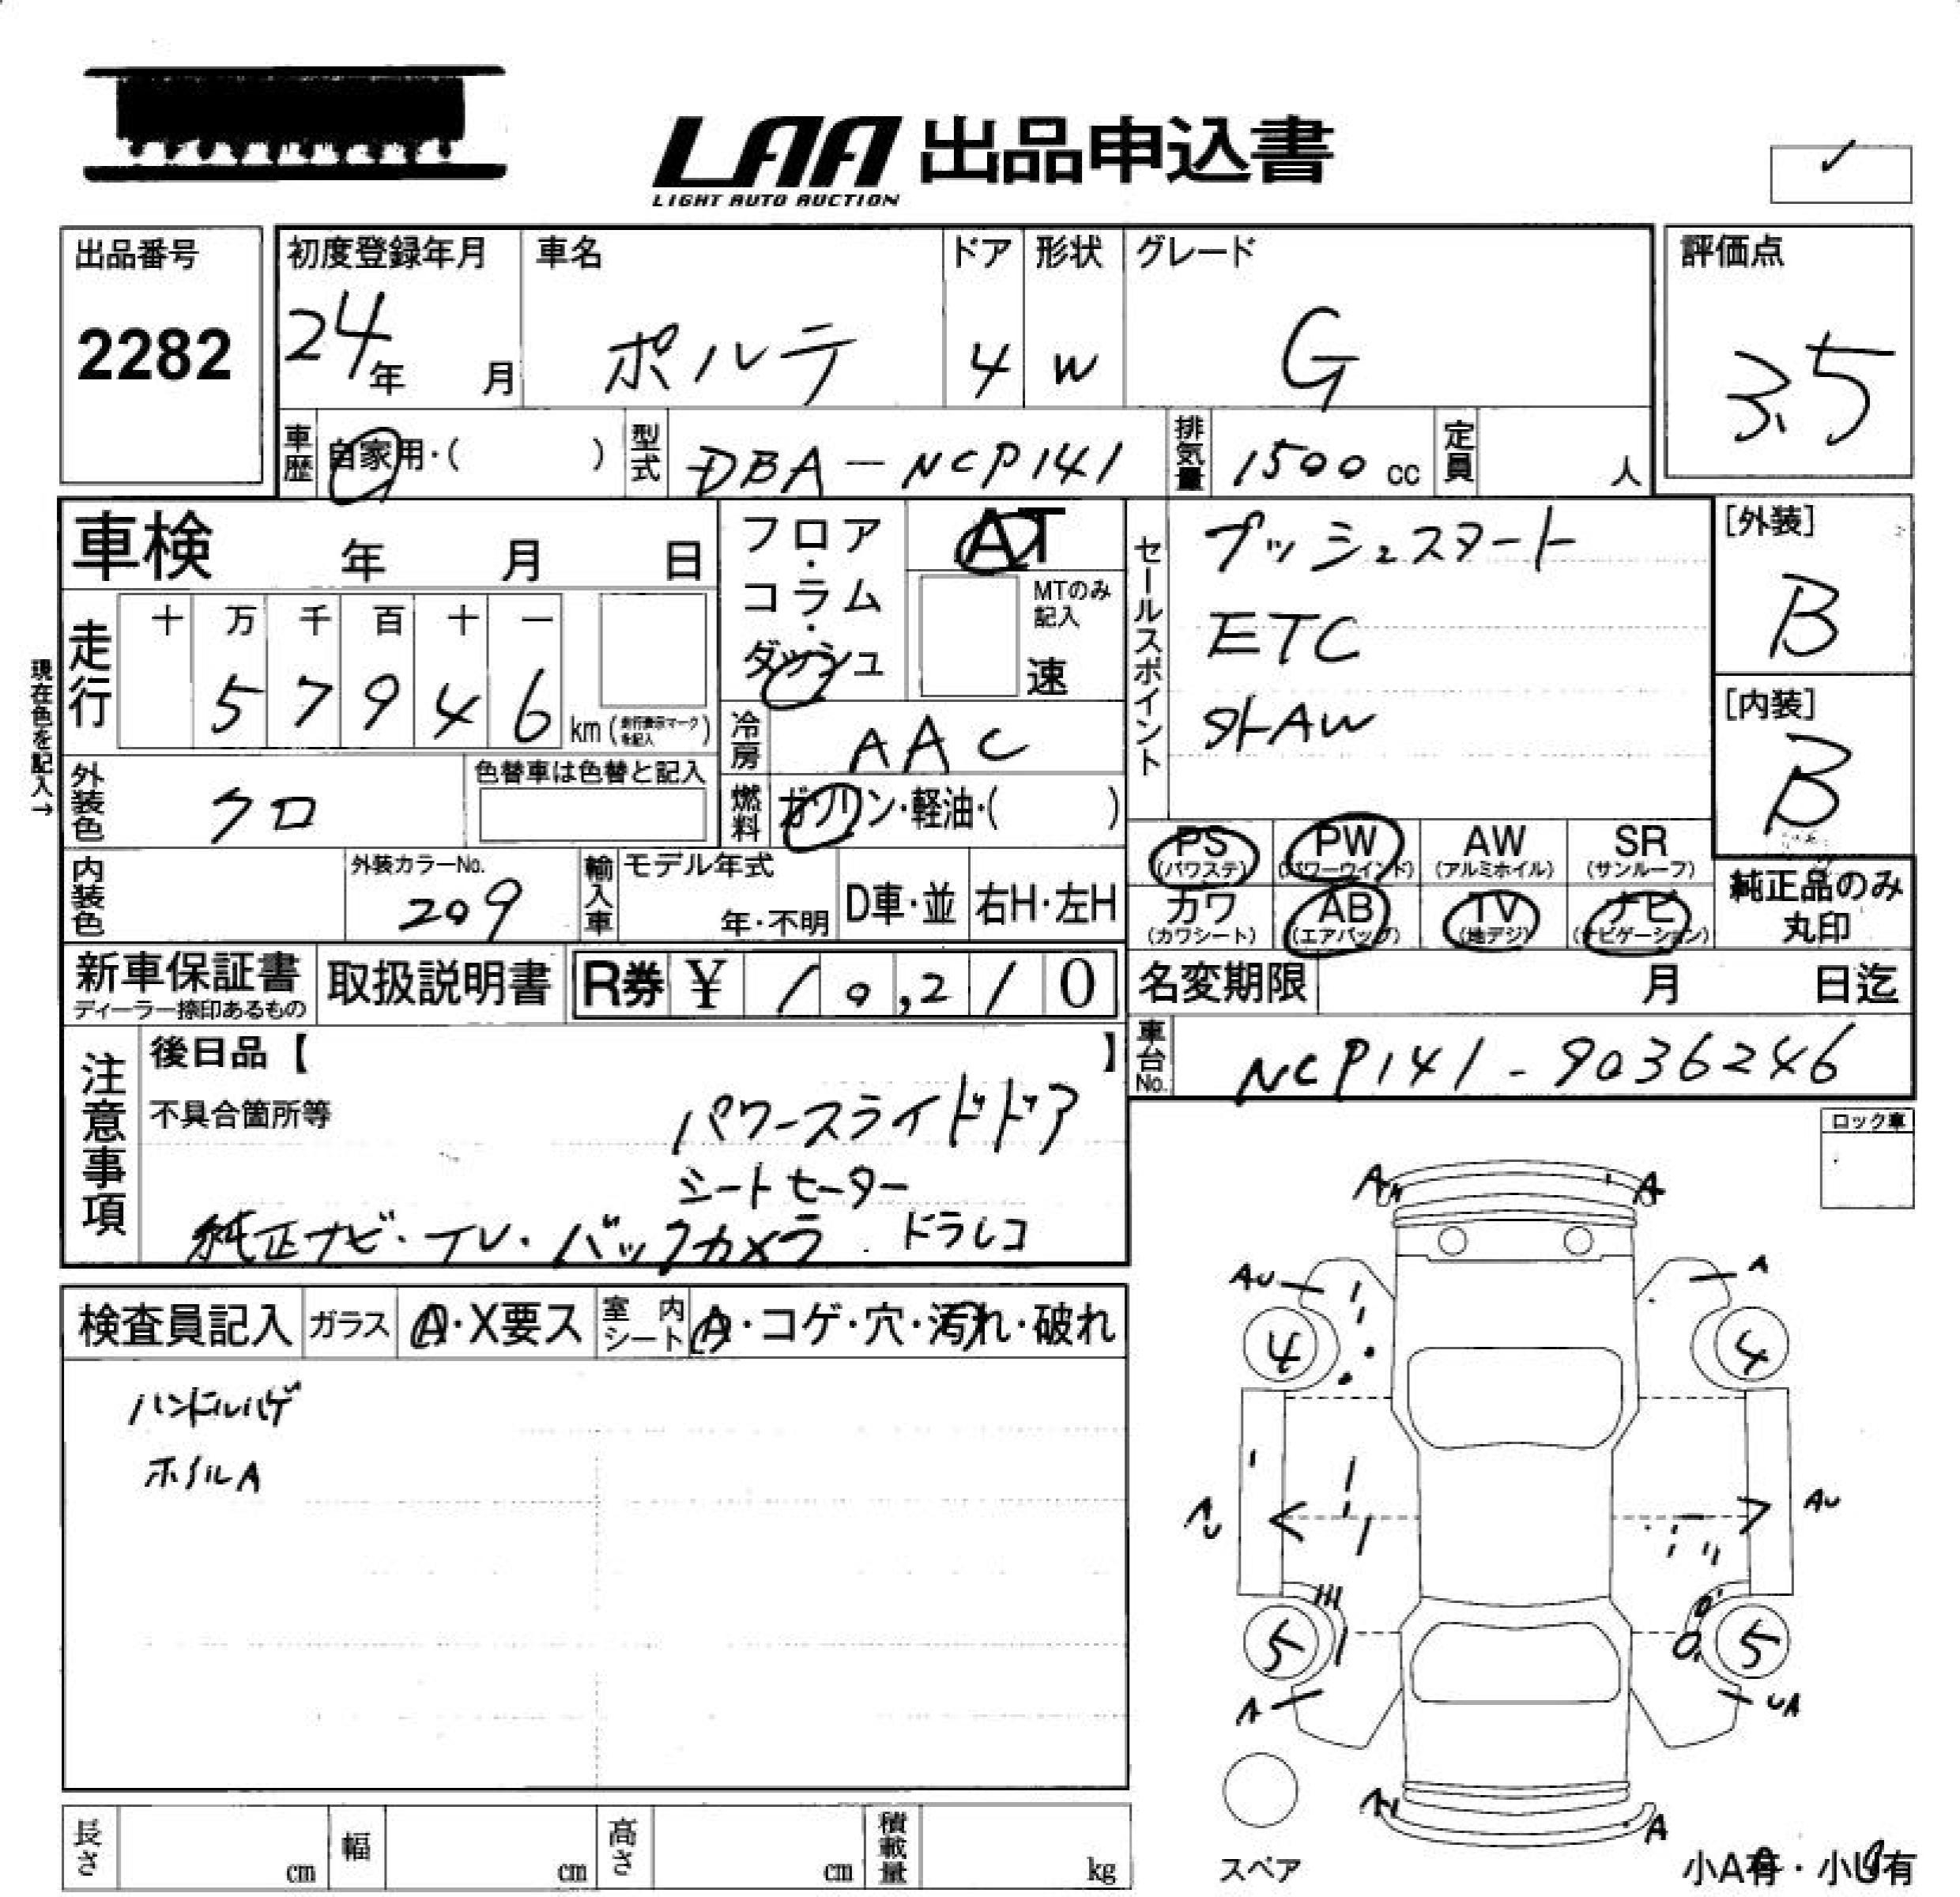 LAA 出品申込書
LIGHT AUTO AUCTION
出品番号
2282
初度登録年月
24年 月
車名
ポルテ
ドア
4
形状
W
グレード
G
評価点
3.5
車歴
自家用・( )
型式
DBA-NCP141
排気量
1500 cc
定員
人
車検 年 月 日
フロア・コラム・ダッシュ
AT
MTのみ記入
速
セールスポイント
プッシュスタート
ETC
外AW
[外装]
B
[内装]
B
現在色を記入→
走行
十 万 千 百 十 一
5 7 9 4 6 km (走行表示マークを記入)
冷房
AAC
外装色
クロ
色替車は色替と記入
燃料
ガソリン・軽油・( )
PS (パワステ)
PW (パワーウインド)
AW (アルミホイル)
SR (サンルーフ)
カワ (カワシート)
AB (エアバッグ)
TV (地デジ)
ナビ (ナビゲーション)
純正品のみ丸印
内装色
外装カラーNo.
209
輸入車
モデル年式
年・不明
D車・並
右H・左H
新車保証書
ディーラー捺印あるもの
取扱説明書
R券 ¥ 10,210
名変期限 月 日迄
車台No.
NCP141-9036246
注意事項
後日品【 】
不具合箇所等
パワースライドドア
シートセーター
純正ナビ・TV・バックカメラ ドラレコ
ロック車
検査員記入
ガラス
A・X要ス
室内シート
A・コゲ・穴・汚れ・破れ
ハンドルハゲ
ホイルA
A A
AU A
4 4
AU
5 5
A UA
A
スペア
小A有・小U有
長さ cm
幅 cm
高さ cm
積載量 kg